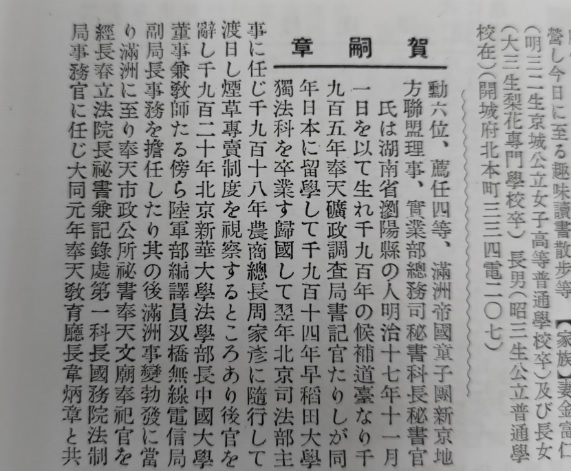 營し今日に至る趣味讀書散步等 【家族】妻金富仁
(明三二生京城公立女子高等普通學校卒)及び長女
(大三生梨花專門學校卒) 長男(昭三生公立普通學
校在)(開城府北本町三三四電二〇七)
賀嗣章
勳六位、薦任四等、滿洲帝國童子團新京地
方聯盟理事、實業部總務司祕書科長祕書官
氏は湖南省瀏陽縣の人明治十七年十一月
一日を以て生れ千九百年の候補道臺なり千
九百五年奉天礦政調査局書記官たりしが同
年日本に留學して千九百十四年早稻田大學
獨法科を卒業す歸國して翌年北京司法部主
事に任じ千九百十八年農商總長周家彥に隨行して
渡日し煙草專賣制度を視察するところあり後官を
辭し千九百二十年北京新華大學法學部長中國大學
董事兼敎師たる傍ら陸軍部編譯員双橋無線電信局
副局長事務を擔任したり其の後滿洲事變勃發に當
り滿洲に至り奉天市政公所祕書奉天文廟奉祀官を
經長春立法院長祕書兼記錄處第一科長國務院法制
局事務官に任じ大同元年奉天敎育廳長韋炳章と共